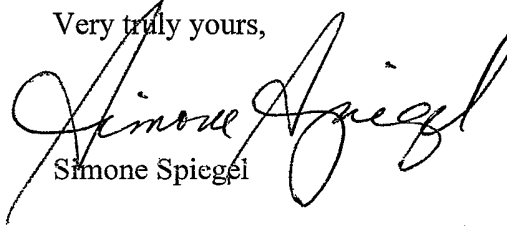 Very truly yours,
Simone Spiegel
Simone Spiegel